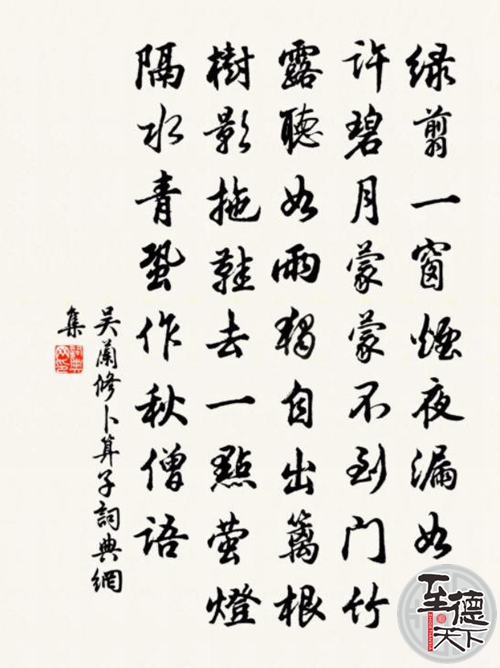 绿翦一窗煙夜漏如
许碧月蒙蒙不到门竹
露聽如雨獨自出籬根
樹影拖鞋去一點萤燈
隔水青蛩作秋僧語
吴蘭修卜算子詞典網
集
至德天下